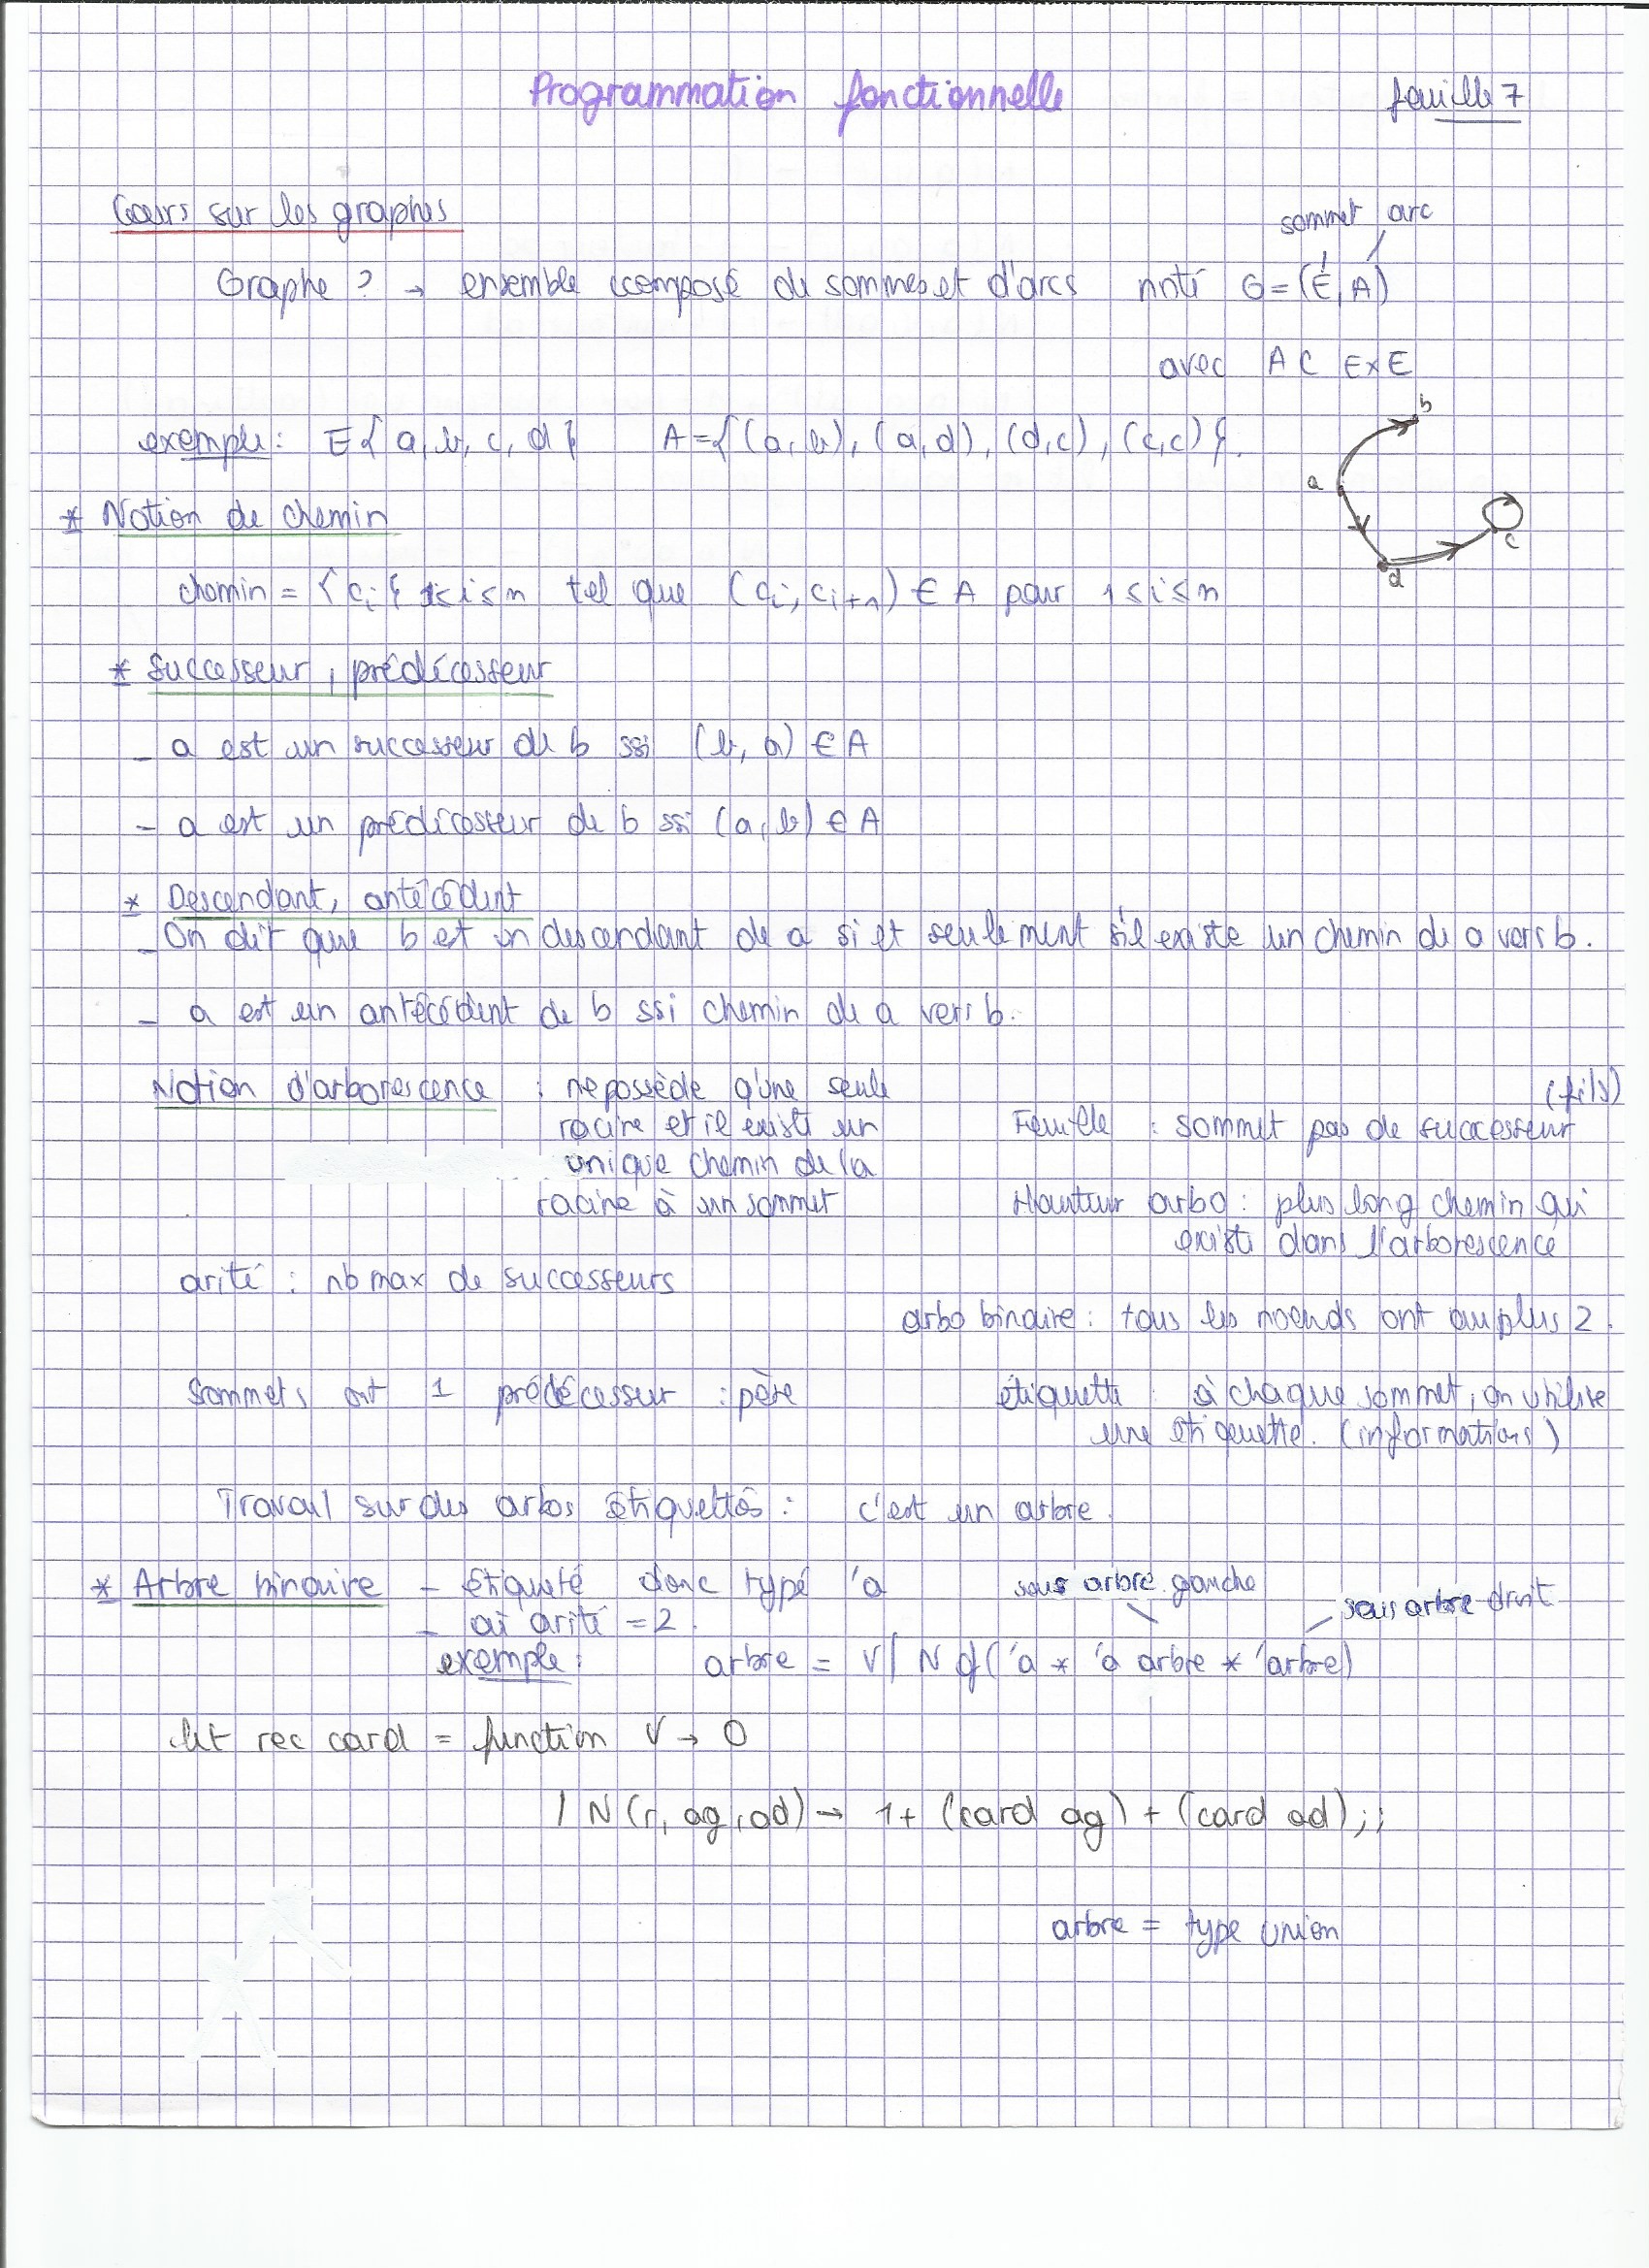 Programmation fonctionnelle
feuille 7
Cours sur les graphes
sommet arc
Graphe ? → ensemble composé de sommes et d'arcs noté G = (E, A)
avec A ⊂ E×E
exemple : E{ a, b, c, d } A = { (a, b), (a, d), (d, c), (c, c) }.
b
a
c
d
* Notion de chemin
chemin = { ci } 1≤i≤n tel que (ci, ci+1) ∈ A pour 1≤i≤n
* Successeur, prédécesseur
- a est un successeur de b ssi (b, a) ∈ A
- a est un prédécesseur de b ssi (a, b) ∈ A
* Descendant, antécédent
- On dit que b est un descendant de a si et seulement s'il existe un chemin de a vers b.
- a est un antécédent de b ssi chemin de a vers b.
Notion d'arborescence : ne possède q'une seule
racine et il existe un
unique chemin de la
racine à un sommet
(fils)
Feuille : sommet pas de successeur
Hauteur arbo : plus long chemin qui
existe dans l'arborescence
arité : nb max de successeurs
arbo binaire : tous les noeuds ont au plus 2.
Sommets ont 1 prédécesseur : père
étiquette : à chaque sommet, on utilise
une étiquette. (informations)
Travail sur des arbos étiquettés : c'est un arbre.
* Arbre binaire - étiqueté donc typé 'a
- où arité = 2.
sous arbre gauche
sous arbre droit
exemple : arbre = V | N of ('a * 'a arbre * 'arbre)
let rec card = function V → 0
| N (r, ag, ad) → 1 + (card ag) + (card ad);;
arbre = type union